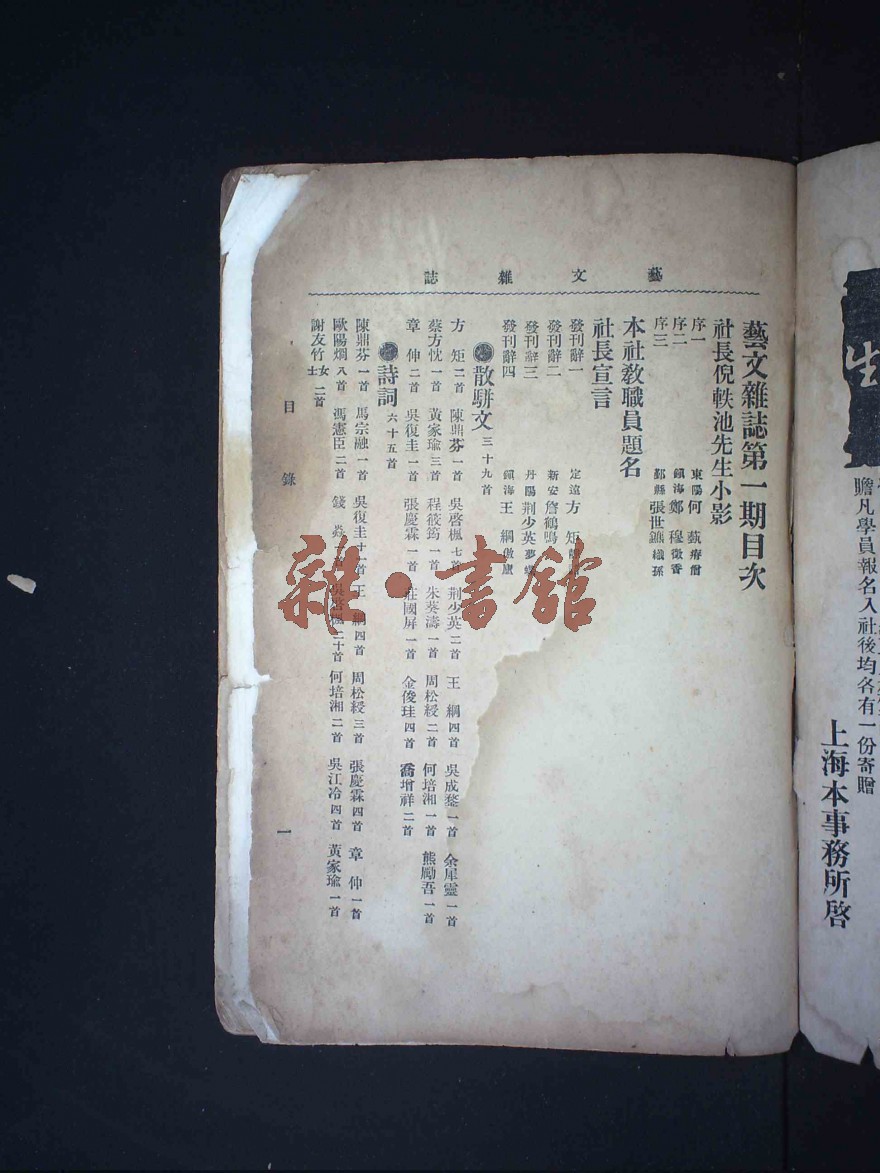 藝文雜誌
藝文雜誌第一期目次
社長倪軼池先生小影
序一 東陽何 蓀瘠僧
序二 鎮海鄭 䅵微香
序三 鄞縣張世鑣織孫
本社教職員題名
社長宣言
發刊辭一 定遠方 矩
發刊辭二 新安詹鶴鳴
發刊辭三 丹陽荆少英夢蝶
發刊辭四 鎮海王 綱傲廬
散駢文 三十九首
方 矩二首 陳鼎芬一首 吳啓楓七首 荆少英二首 王 綱四首 吳成鍪一首 余犀靈一首
蔡方忱一首 黃家瑜三首 程筱筠一首 朱葵濤一首 周松綬二首 何培湘一首 熊勵吾一首
章 仲二首 吳復圭一首 張慶霖一首 莊國屏一首 金俊珪四首 喬增祥二首
詩詞 六十五首
陳鼎芬一首 馬宗融一首 吳復圭十一首 王 綱四首 周松綬三首 張慶霖四首 章 仲一首
歐陽燗八首 馮憲臣二首 錢 首 吳啓楓二十首 何培湘二首 吳江冷四首 黃家瑜一首
謝友竹女士二首
目錄
一
雜·書館
生
贍凡學員報名入社後均各有一份寄贈
上海本事務所啓